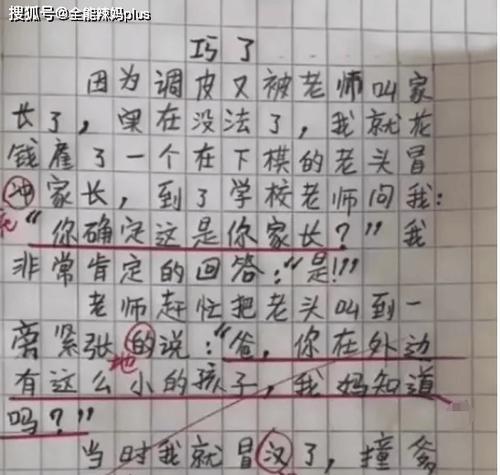 搜狐号@全能辣妈plus
巧了
因为调皮又被老师叫家
长了，实在没法了，我就花
钱雇了一个在下棋的老头冒
冲家长，到了学校老师问我：
“你确定这是你家长？”我
非常肯定的回答：“是！”
老师赶忙把老头叫到一
旁紧张的说：“爸，你在外边
地
有这么小的孩子，我妈知道
吗？”
当时我就冒汉了，撞爹